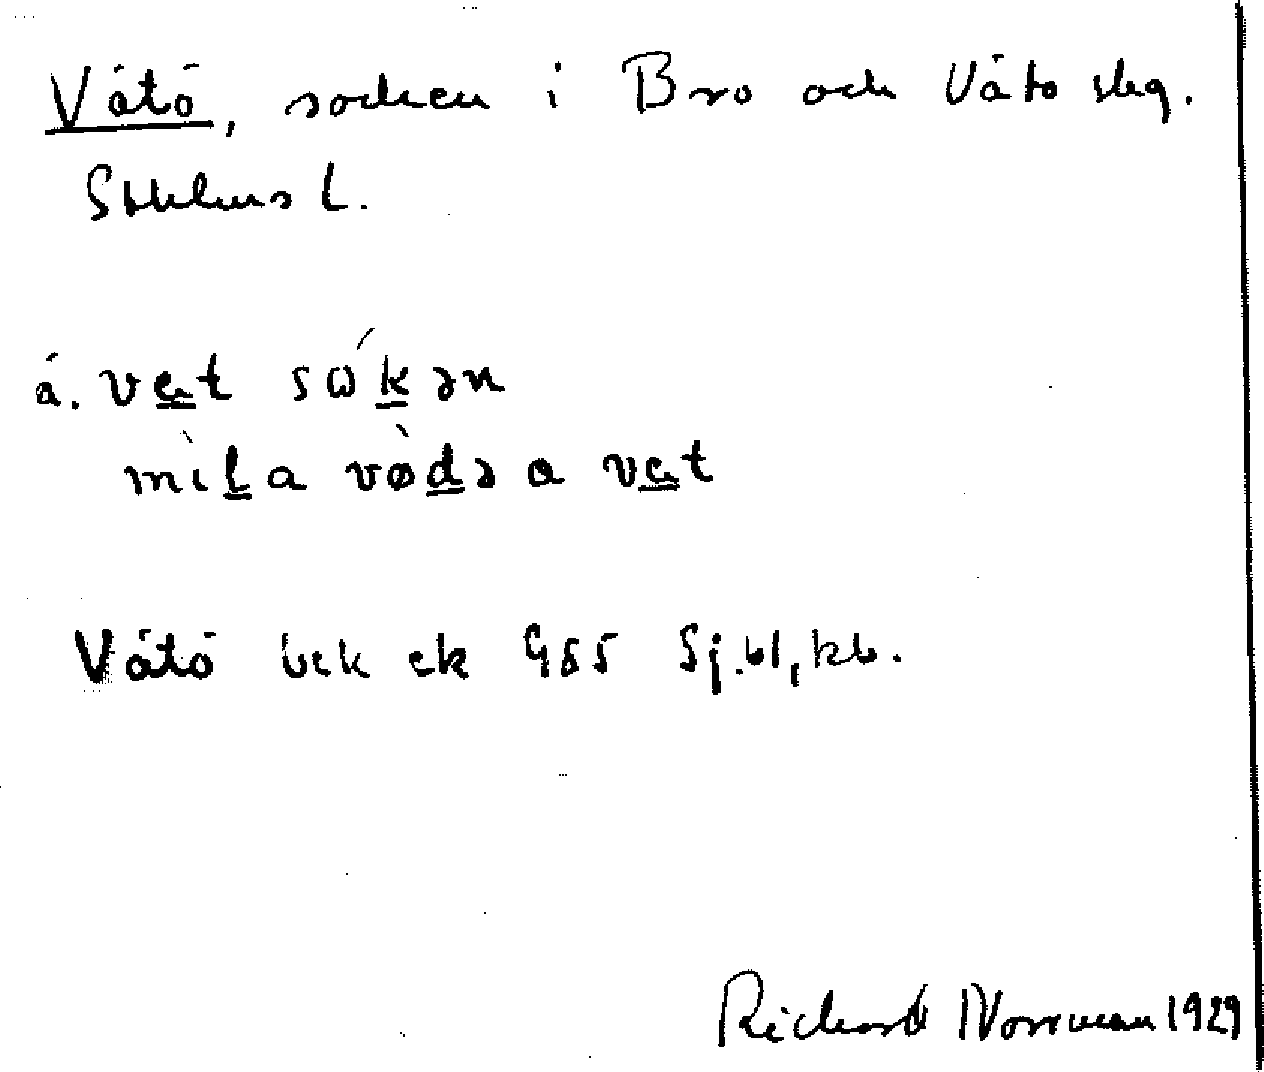 Vätö, socken i Bro och Vätö skg.
Stkhlms l.
a. vɛt sωkən
mila vødə a vɛt
Vätö bek ek 955 Sj.bl, kb.
Richard Norrman 1929